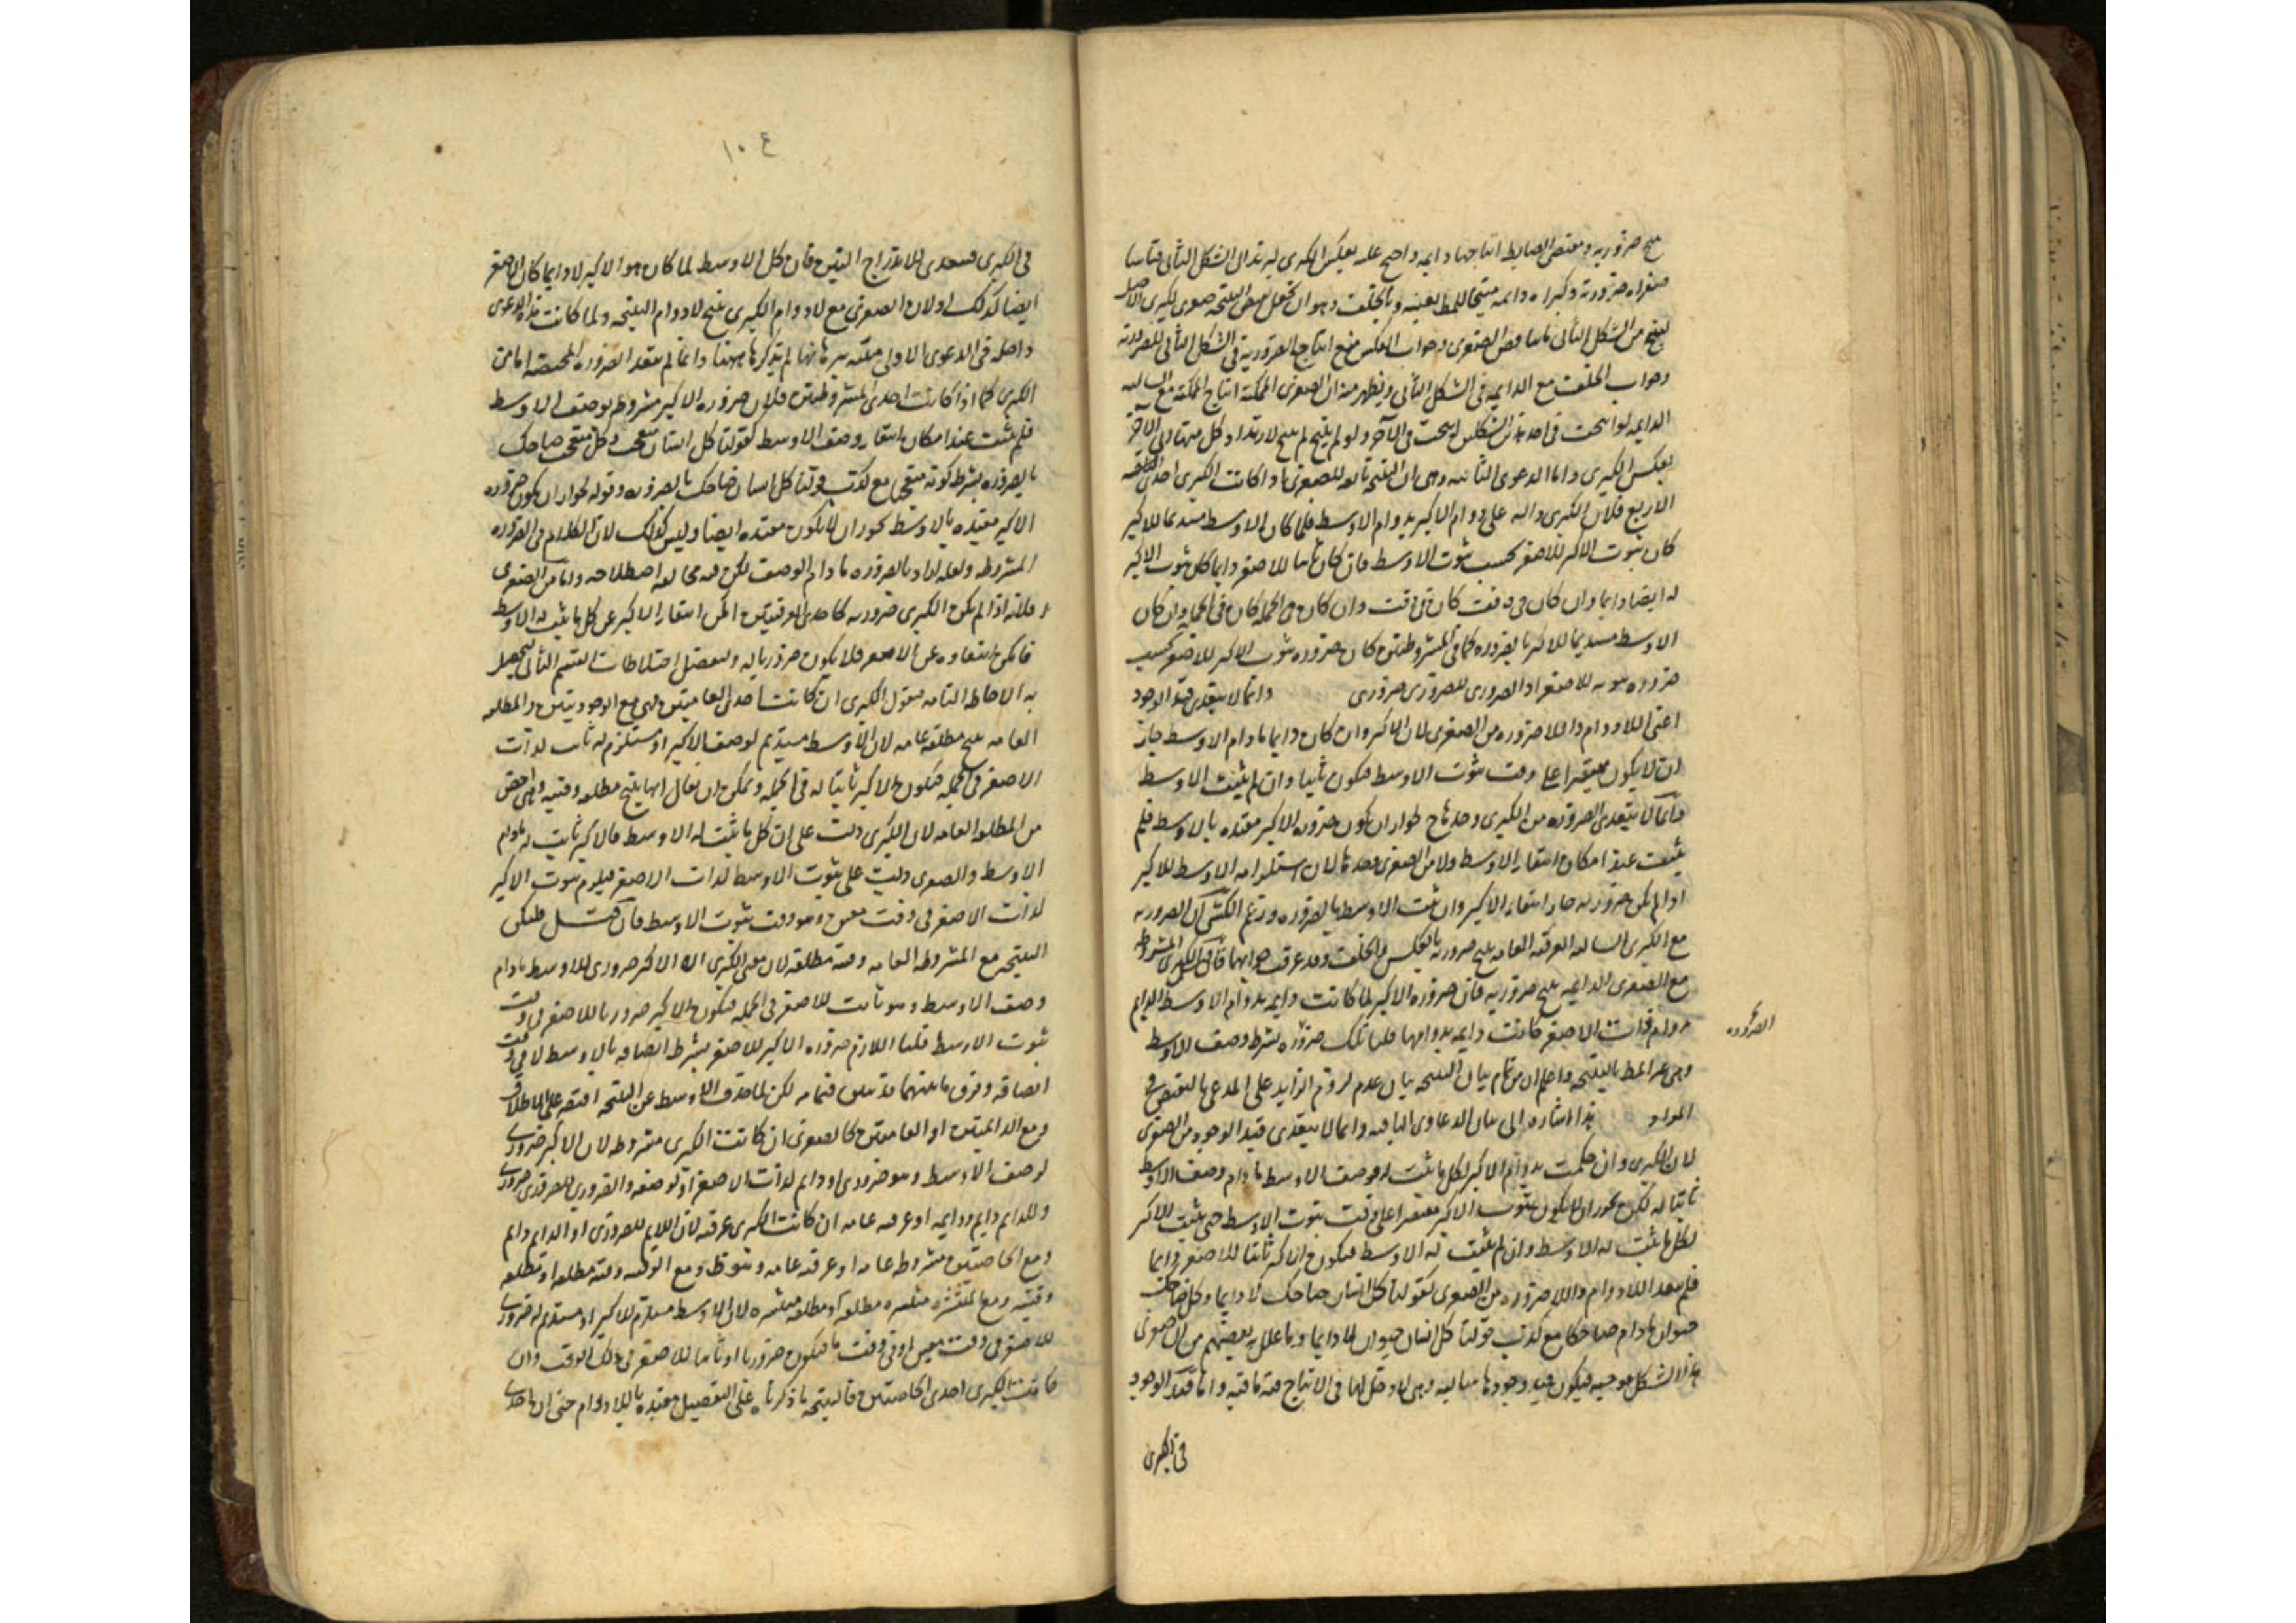 ينتج ضرورية ومقتضى الضابط انتاجها دايمة واحتج عليه بعكس الكبرى ليرتد الى الشكل الثاني قياسا
صغراه ضرورية وكبراه دايمة منتجا للمط بعينه وبالخلف وهو ان نجعل نقيض النتيجة صغرى لكبرى الاصل
لينتج من الشكل الثاني ما يناقض الصغرى وجواب العكس منع انتاج الضرورية في الشكل الثاني للضرورية
وجواب الخلف مع الدايمة في الشكل الثاني ويظهر منه ان الصغرى الممكنة انتاج الممكنة مع السالبة
الدايمة لو انتجت في احد هذين الشكلين انتجت في الآخر ولو لم ينتج لم ينتج لارتداد كل منهما الى الآخر
بعكس الكبرى واما الدعوى الثانية وهي ان النتيجة تابعة للصغرى اذا كانت الكبرى احدى
الاربع فلان الكبرى دالة على دوام الاكبر بدوام الاوسط فلما كان الاوسط مستديما للاكبر
كان ثبوت الاكبر للاصغر بحسب ثبوت الاوسط فان كان ثابتا للاصغر دايما كان ثبوت الاكبر
له ايضا دايما وان كان في وقت كان في وقت وان كان في الجملة كان في الجملة وان كان
الاوسط مستديما للاكبر بالضرورة كما في المشروطتين كان ضرورة ثبوت الاكبر للاصغر بحسب
ضرورة ثبوته للاصغر اذ الضروري للضروري ضروري وانما لا يتعدى قيد الوجود
اعني اللادوام واللاضرورة من الصغرى لان الاكبر وان كان دايما مادام الاوسط جاز
ان لا يكون مقتصرا على وقت ثبوت الاوسط فيكون ثابتا وان لم يثبت الاوسط
وانما لا يتعدى الضرورة من الكبرى وحدها لجواز ان يكون ضرورة الاكبر مقيدة بالاوسط فلم
يثبت عند امكان انتفاء الاوسط ولا من الصغرى وحدها لان استلزامه الاوسط للاكبر
اذا لم يكن ضروريا جاز انتفاء الاكبر وان ثبت الاوسط بالضرورة وزعم الكشي ان الضرورية
مع الكبرى السالبة العرفية العامة ينتج ضرورية بالعكس والخلف وقد عرفت جوابهما المشروطة
مع الصغرى الدايمة ينتج ضرورية فان ضرورة الاكبر لما كانت دايمة بدوام الاوسط الدايم
بدوام ذات الاصغر كانت دايمة بدوامها قلنا تلك ضرورة بشرط وصف الاوسط
الضرورة
وهي غير المط بالنتيجة واعلم ان من تمام بيان النتيجة بيان عدم لزوم الزايد على المدعى بالنقض في
المواد هذا اشارة الى بيان الدعاوى الباقية وانما لا يتعدى قيد الوجود من الصغرى
لان الكبرى وان حكمت بدوام الاكبر لكل ما ثبت له وصف الاوسط مادام وصف الاوسط
ثابتا له لكن يجوز ان لا يكون ثبوت الاكبر مقتصرا على وقت ثبوت الاوسط حتى يثبت الاكبر
لكل ما ثبت له الاوسط وان لم يثبت له الاوسط فيكون الاكبر ثابتا للاصغر دايما
فلم يتعد اللادوام واللاضرورة من الصغرى كقولنا كل انسان ضاحك لا دايما وكل ضاحك
حيوان مادام ضاحكا مع كذب قولنا كل انسان حيوان لا دايما وما علل به بعضهم من ان صغرى
هذا الشكل موجبة فيكون قيد وجودها سالبة وهي لا دخل لها في الانتاج ففيه ما فيه واما قيد الوجود
في الكبرى
١٠٤
في الكبرى فيتعدى للاندراج البين فان كل الاوسط لما كان هو الاكبر لا دايما كان الاصغر
ايضا كذلك ولان الصغرى مع لادوام الكبرى ينتج لادوام النتيجة ولما كانت هذه الدعوى
داخلة في الدعوى الاولى مبينة ببرهانها لم يذكرها ههنا وانما لم يتعد الضرورة المختصة اما من
الكبرى كما اذا كانت احدى المشروطتين فلان ضرورة الاكبر مشروطة بوصف الاوسط
فلم يثبت عند امكان انتفاء وصف الاوسط كقولنا كل انسان متعجب وكل متعجب ضاحك
بالضرورة بشرط كونه متعجبا مع كذب قولنا كل انسان ضاحك بالضرورة وقوله لجواز ان يكون ضرورة
الاكبر مقيدة بالاوسط يجوز ان لا يكون مقيدة ايضا وليس كذلك لان الكلام في الضرورة
المشروطة ولعله اراد بالضرورة مادام الوصف لكن فيه مخالفة اصطلاحه واما من الصغرى
فلانه اذا لم يكن الكبرى ضرورية كاحدى الوقتيتين امكن انتفاء الاكبر عن كل ما ثبت له الاوسط
فامكن انتفاؤه عن الاصغر فلا يكون ضروريا له ولنفصل اختلاطات القسم الثاني ليحصل
به الاحاطة التامة فنقول الكبرى ان كانت احدى العامتين فهي مع الوجوديتين والمطلقة
العامة ينتج مطلقة عامة لان الاوسط مستديم لوصف الاكبر او مستلزم له ثابت لذات
الاصغر في الجملة فيكون الاكبر ثابتا له في الجملة ويمكن ان يقال انها ينتج مطلقة وقتية وهي اخص
من المطلقة العامة لان الكبرى دلت على ان كل ما ثبت له الاوسط فالاكبر ثابت له مادام
الاوسط والصغرى دلت على ثبوت الاوسط لذات الاصغر فيلزم ثبوت الاكبر
لذات الاصغر في وقت معين وهو وقت ثبوت الاوسط فان قيل فليكن
النتيجة مع المشروطة العامة وقتية مطلقة لان معنى الكبرى ان الاكبر ضروري للاوسط مادام
وصف الاوسط وهو ثابت للاصغر في الجملة فيكون الاكبر ضروريا للاصغر في وقت
ثبوت الاوسط قلنا اللازم ضرورة الاكبر للاصغر بشرط اتصافه بالاوسط لا في وقت
اتصافه وفرق ما بينهما قد تبين فيما مر لكن لما حذف الاوسط عن النتيجة اقتصر على الاطلاق
ومع الدايمتين او العامتين كالصغرى ان كانت الكبرى مشروطة لان الاكبر ضروري
لوصف الاوسط وهو ضروري او دايم لذات الاصغر او لوصفه والضروري للضروري ضروري
وللدايم دايم ودايمة او عرفية عامة ان كانت الكبرى عرفية لان الدايم للضروري او الدايم دايم
ومع الخاصتين مشروطة عامة او عرفية عامة ومع الوقتية وقتية مطلقة او مطلقة
وقتية ومع المنتشرة منتشرة مطلقة او مطلقة منتشرة لان الاوسط مستلزم للاكبر او مستديم له ضروري
للاصغر في وقت معين او في وقت ما فيكون ضروريا او ثابتا للاصغر في ذلك الوقت وان
كانت الكبرى احدى الخاصتين فالنتيجة ما ذكرناه على التفصيل مقيدة باللادوام حتى ان احدى